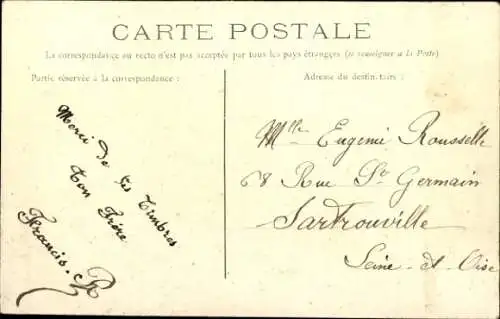 CARTE POSTALE
La correspondance au recto n'est pas acceptée par tous les pays étrangers (se renseigner à la Poste)
Partie réservée à la correspondance :
Adresse du destinataire :
Merci de tes Timbres
Ton Frère
Francis. R
Mlle Eugenie Rousselle
68 Rue St Germain
Sartrouville
Seine-et-Oise